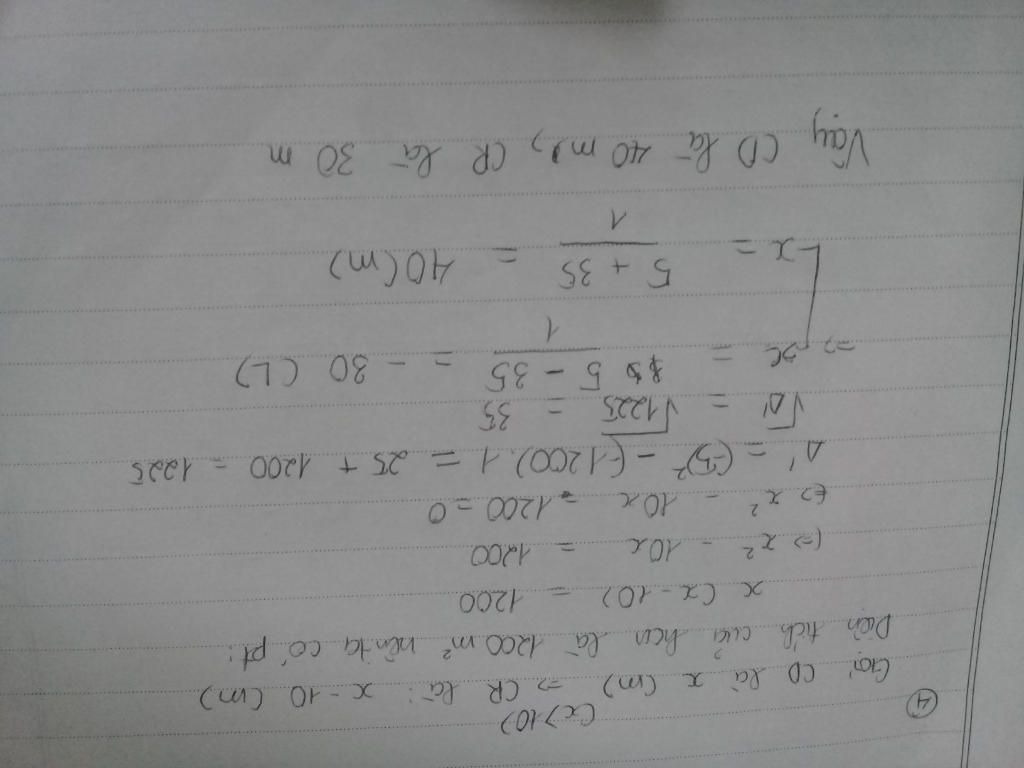 ④ (x > 10)
Gọi CD là x (m) => CR là: x - 10 (m)
Diện tích của hcn là 1200 m² nên ta có pt:
x (x - 10) = 1200
(=> x² - 10x = 1200
(=> x² - 10x - 1200 = 0
Δ' = (-5)² - (-1200).1 = 25 + 1200 = 1225
√Δ' = √1225 = 35
=> x = 5 - 35 / 1 = - 30 (L)
x = 5 + 35 / 1 = 40 (m)
Vậy CD là 40 m, CR là 30 m